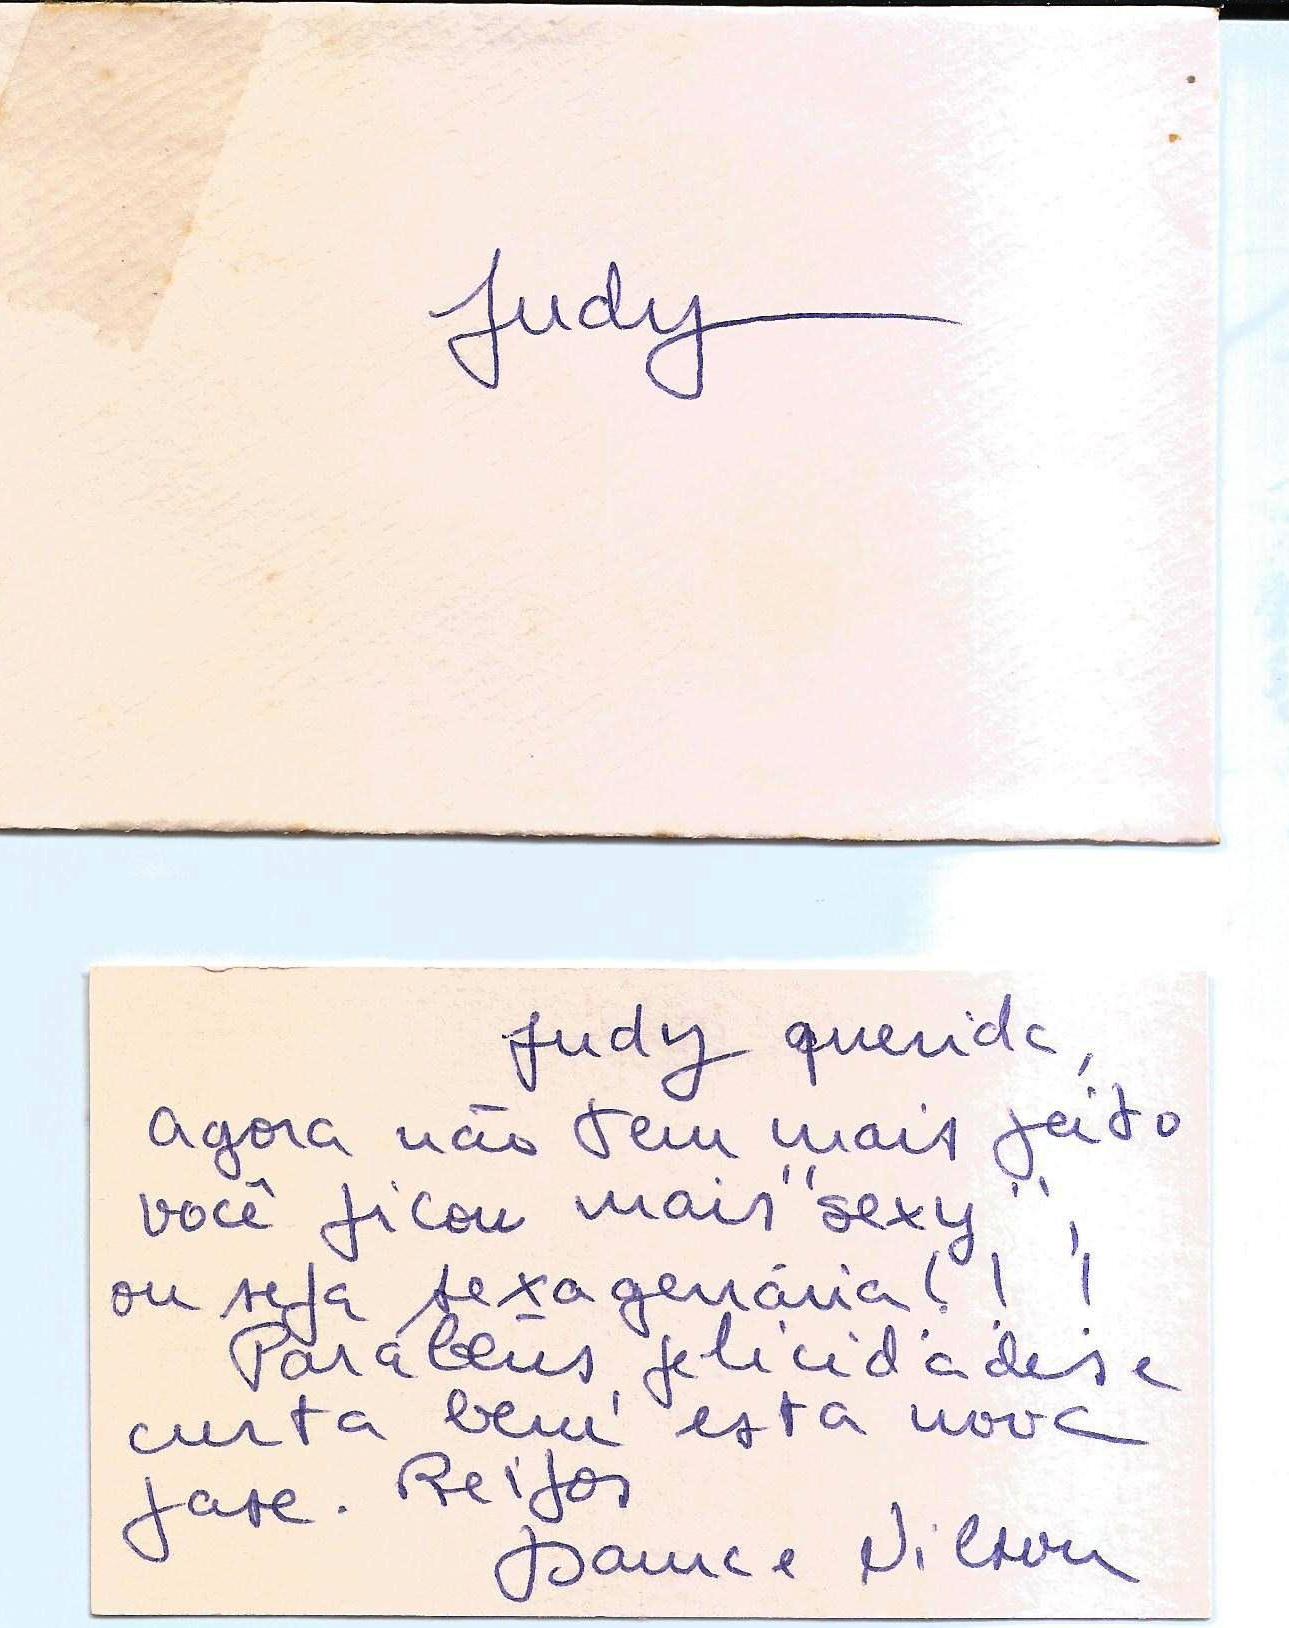 Judy
Judy querida,
Agora não tem mais jeito
você ficou mais "sexy",
ou seja sexagenária!!!
Parabéns, felicidades e
curta bem esta nova
fase. Beijos
Nilson